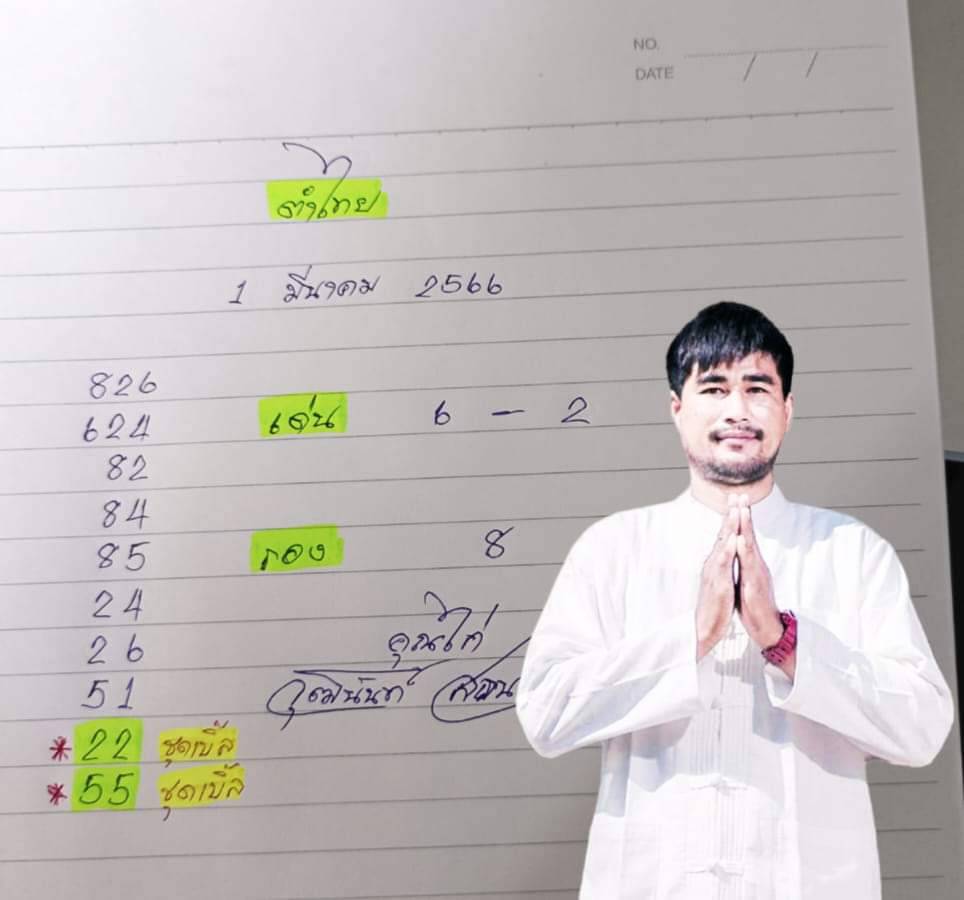 NO.
DATE / /
1 มีนาคม 2566
826
624 เด่น 6 - 2
82
84
85 รอง 8
24
26 คุณไก่
51 วุฒินันท์
*22 ชุดเบิ้ล
*55 ชุดเบิ้ล